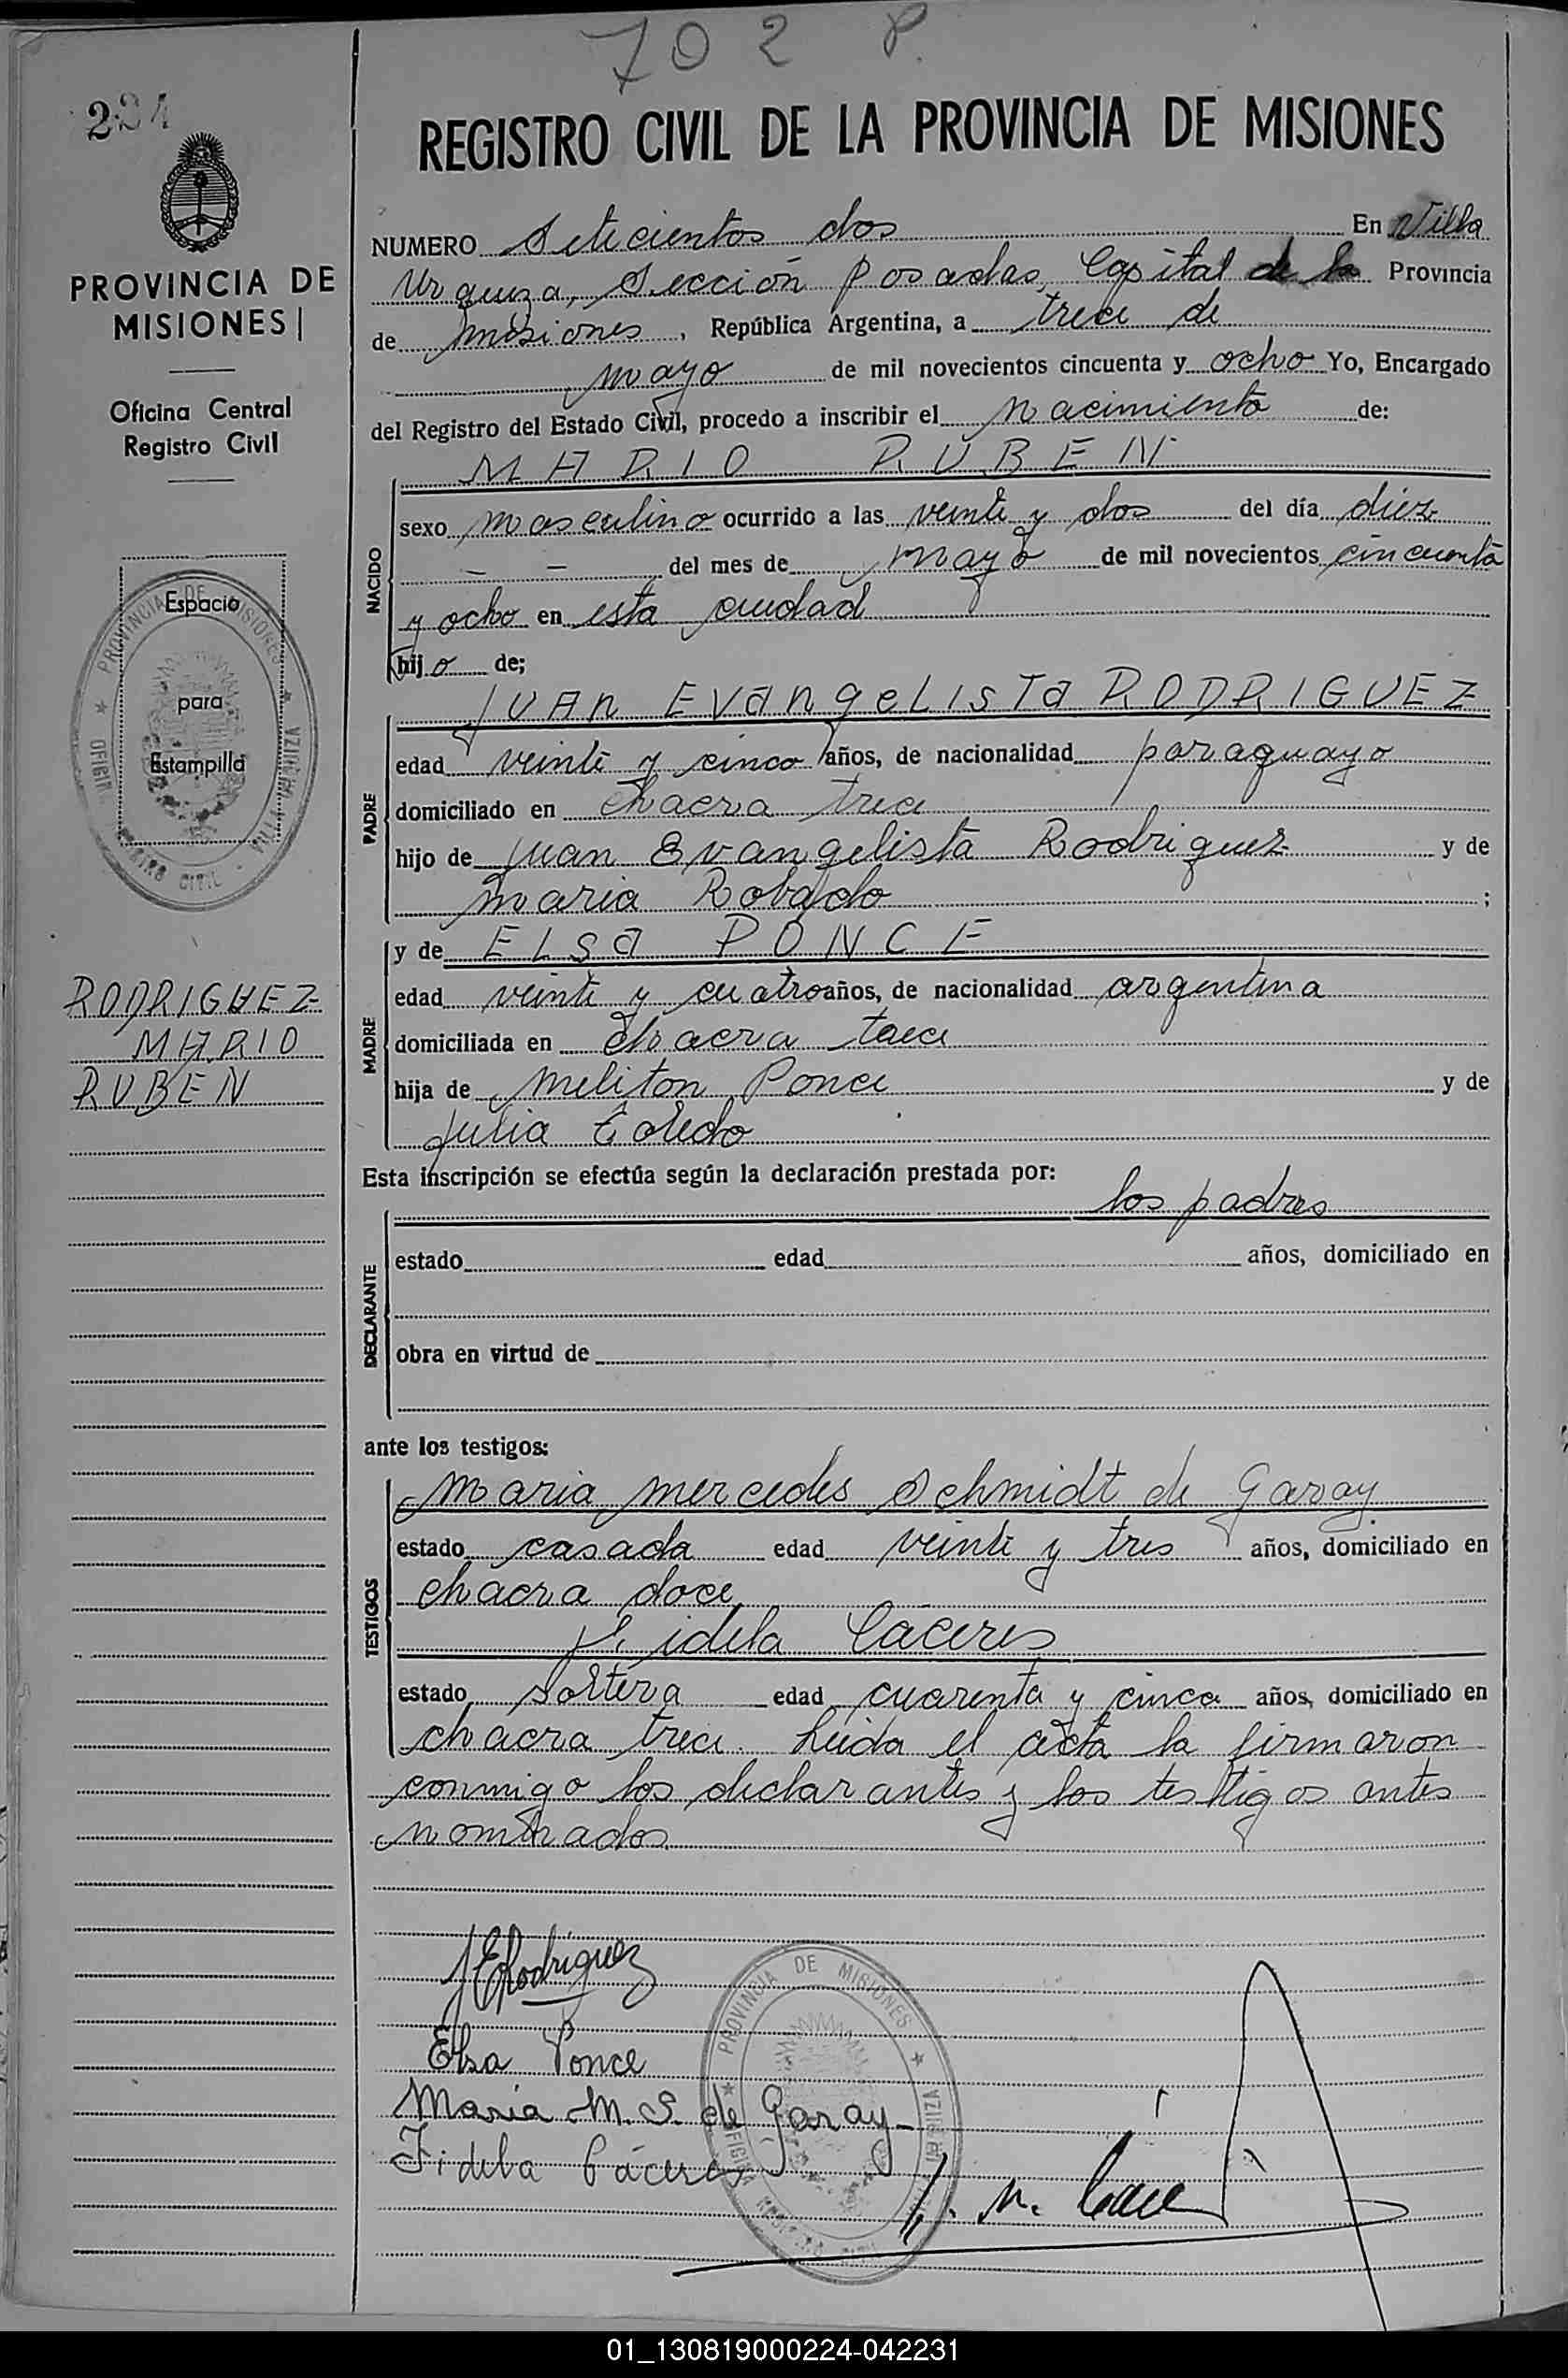 702 P.
224
REGISTRO CIVIL DE LA PROVINCIA DE MISIONES
PROVINCIA DE
MISIONES
Oficina Central
Registro Civil
Espacio
para
Estampilla
RODRIGUEZ
MARIO
RUBEN
NUMERO Setecientos dos En Villa
Urquiza, Sección Posadas, Capital de la Provincia
de Misiones, República Argentina, a trece de
mayo de mil novecientos cincuenta y ocho Yo, Encargado
del Registro del Estado Civil, procedo a inscribir el nacimiento de:
MARIO RUBEN
NACIDO
sexo masculino ocurrido a las veinte y dos del día diez
— — del mes de mayo de mil novecientos cincuenta
y ocho en esta ciudad
hijo de;
JUAN EVangeLISTa RODRIGUEZ
PADRE
edad veinte y cinco años, de nacionalidad paraguayo
domiciliado en chacra trece
hijo de Juan Evangelista Rodriguez y de
Maria Robaldo ;
y de ELSa PONCE
MADRE
edad veinte y cuatro años, de nacionalidad argentina
domiciliada en chacra trece
hija de Meliton Ponce y de
Julia Toledo
Esta inscripción se efectúa según la declaración prestada por:
los padres
DECLARANTE
estado edad años, domiciliado en
obra en virtud de
ante los testigos:
TESTIGOS
Maria Mercedes Schmidt de Garay
estado casada edad veinte y tres años, domiciliado en
chacra doce
Fidela Cáceres
estado soltera edad cuarenta y cinco años, domiciliado en
chacra trece. Leida el acta la firmaron
conmigo los declarantes y los testigos antes
nombrados
JERodríguez
Elsa Ponce
Maria M. S. de Garay
Fidela Cáceres
PROVINCIA DE MISIONES
01_130819000224-042231